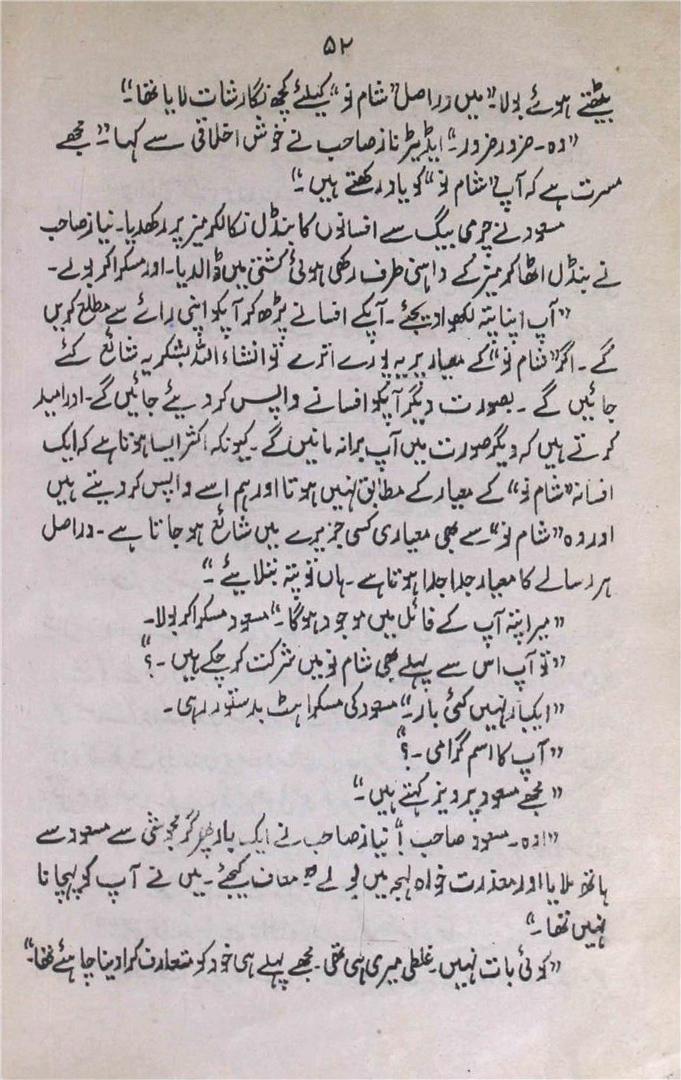 ۵۲
بیٹھتے ہوئے بولا۔ "میں دراصل "شام نو" کیلئے کچھ نگارشات لایا تھا"
"وہ۔ ضرور ضرور۔" ایڈیٹر نیاز صاحب نے خوش اخلاقی سے کہا۔ "مجھے
مسرت ہے کہ آپ "شام نو" کو یاد رکھتے ہیں۔"
مسعود نے چرمی بیگ سے افسانوں کا بنڈل نکالکر میز پر رکھدیا۔ نیاز صاحب
نے بنڈل اٹھا کر میز کے داہنی طرف رکھی ہوئی کشتی میں ڈالدیا۔ اور مسکرا کر بولے۔
"آپ اپنا پتہ لکھوا دیجئے۔ آپکے افسانے پڑھ کر آپکو اپنی رائے سے مطلع کریں
گے۔ اگر "شام نو" کے معیار پر یہ پورے اترے تو انشاء اللہ بشکریہ شائع کئے
جائیں گے۔ بصورت دیگر آپکو افسانے واپس کر دیئے جائیں گے۔ اور امید
کرتے ہیں کہ دیگر صورت میں آپ برا نہ مانیں گے۔ کیونکہ اکثر ایسا ہوتا ہے کہ ایک
افسانہ "شام نو" کے معیار کے مطابق نہیں ہوتا اور ہم اسے واپس کر دیتے ہیں
اور وہ "شام نو" سے بھی معیاری کسی جریدے میں شائع ہو جاتا ہے۔ دراصل
ہر رسالے کا معیار جدا جدا ہوتا ہے۔ ہاں تو پتہ بتلایئے۔"
"میرا پتہ آپ کے فائل میں موجود ہو گا۔" مسعود مسکرا کر بولا۔
"تو آپ اس سے پہلے بھی شام نو میں شرکت کر چکے ہیں۔؟"
"ایکبار نہیں کئی بار۔" مسعود کی مسکراہٹ بدستور رہی۔
"آپ کا اسم گرامی۔؟"
"مجھے مسعود پرویز کہتے ہیں۔"
"اوہ۔ مسعود صاحب!" نیاز صاحب نے ایک بار پھر گرمجوشی سے مسعود سے
ہاتھ ملایا اور معذرت خواہ لہجہ میں بولے "معاف کیجئے۔ میں نے آپ کو پہچانا
نہیں تھا۔"
"کوئی بات نہیں۔ غلطی میری ہی تھی۔ مجھے پہلے ہی خود کو متعارف کرا دینا چاہئے تھا۔"